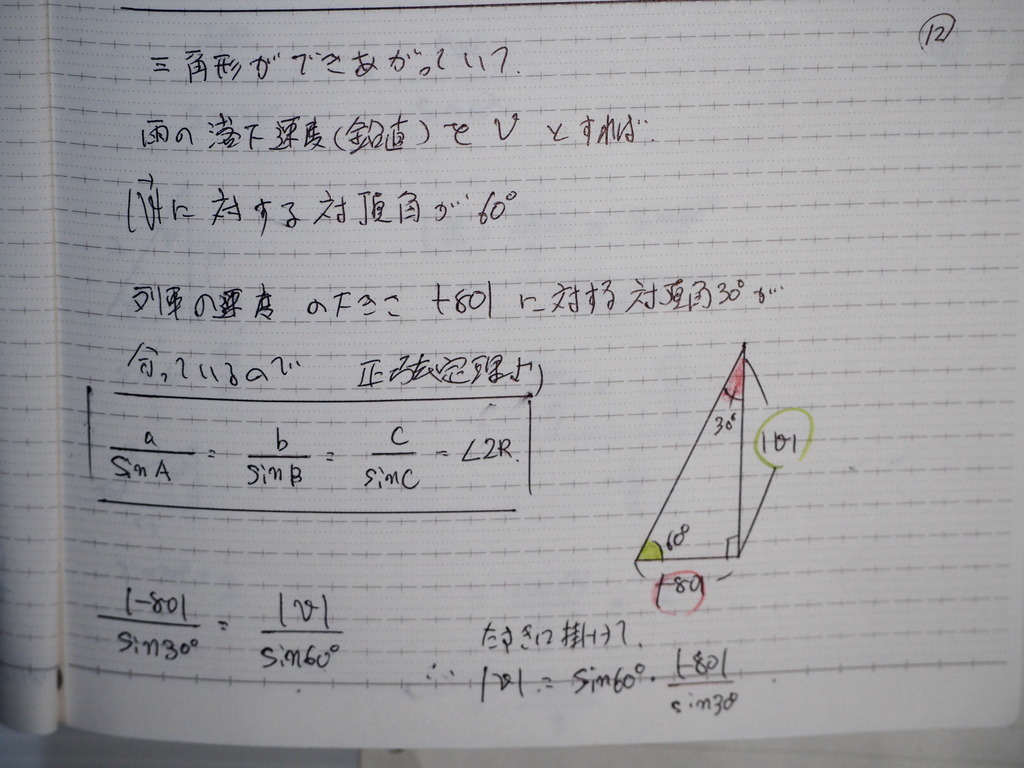 ⑫
三角形ができあがっていて.
雨の落下速度(鉛直)を v とすれば.
|v⃗|に対する対頂角が60°
列車の速度 の大きさ |-80| に対する対頂角30°が
分っているので 正弦定理より
a/sinA = b/sinB = c/sinC = ∠2R.
30°
|v|
60°
|-80|
|-80|/sin30° = |v|/sin60°
たすきに掛けて.
∴ |v| = sin60°・|-80|/sin30